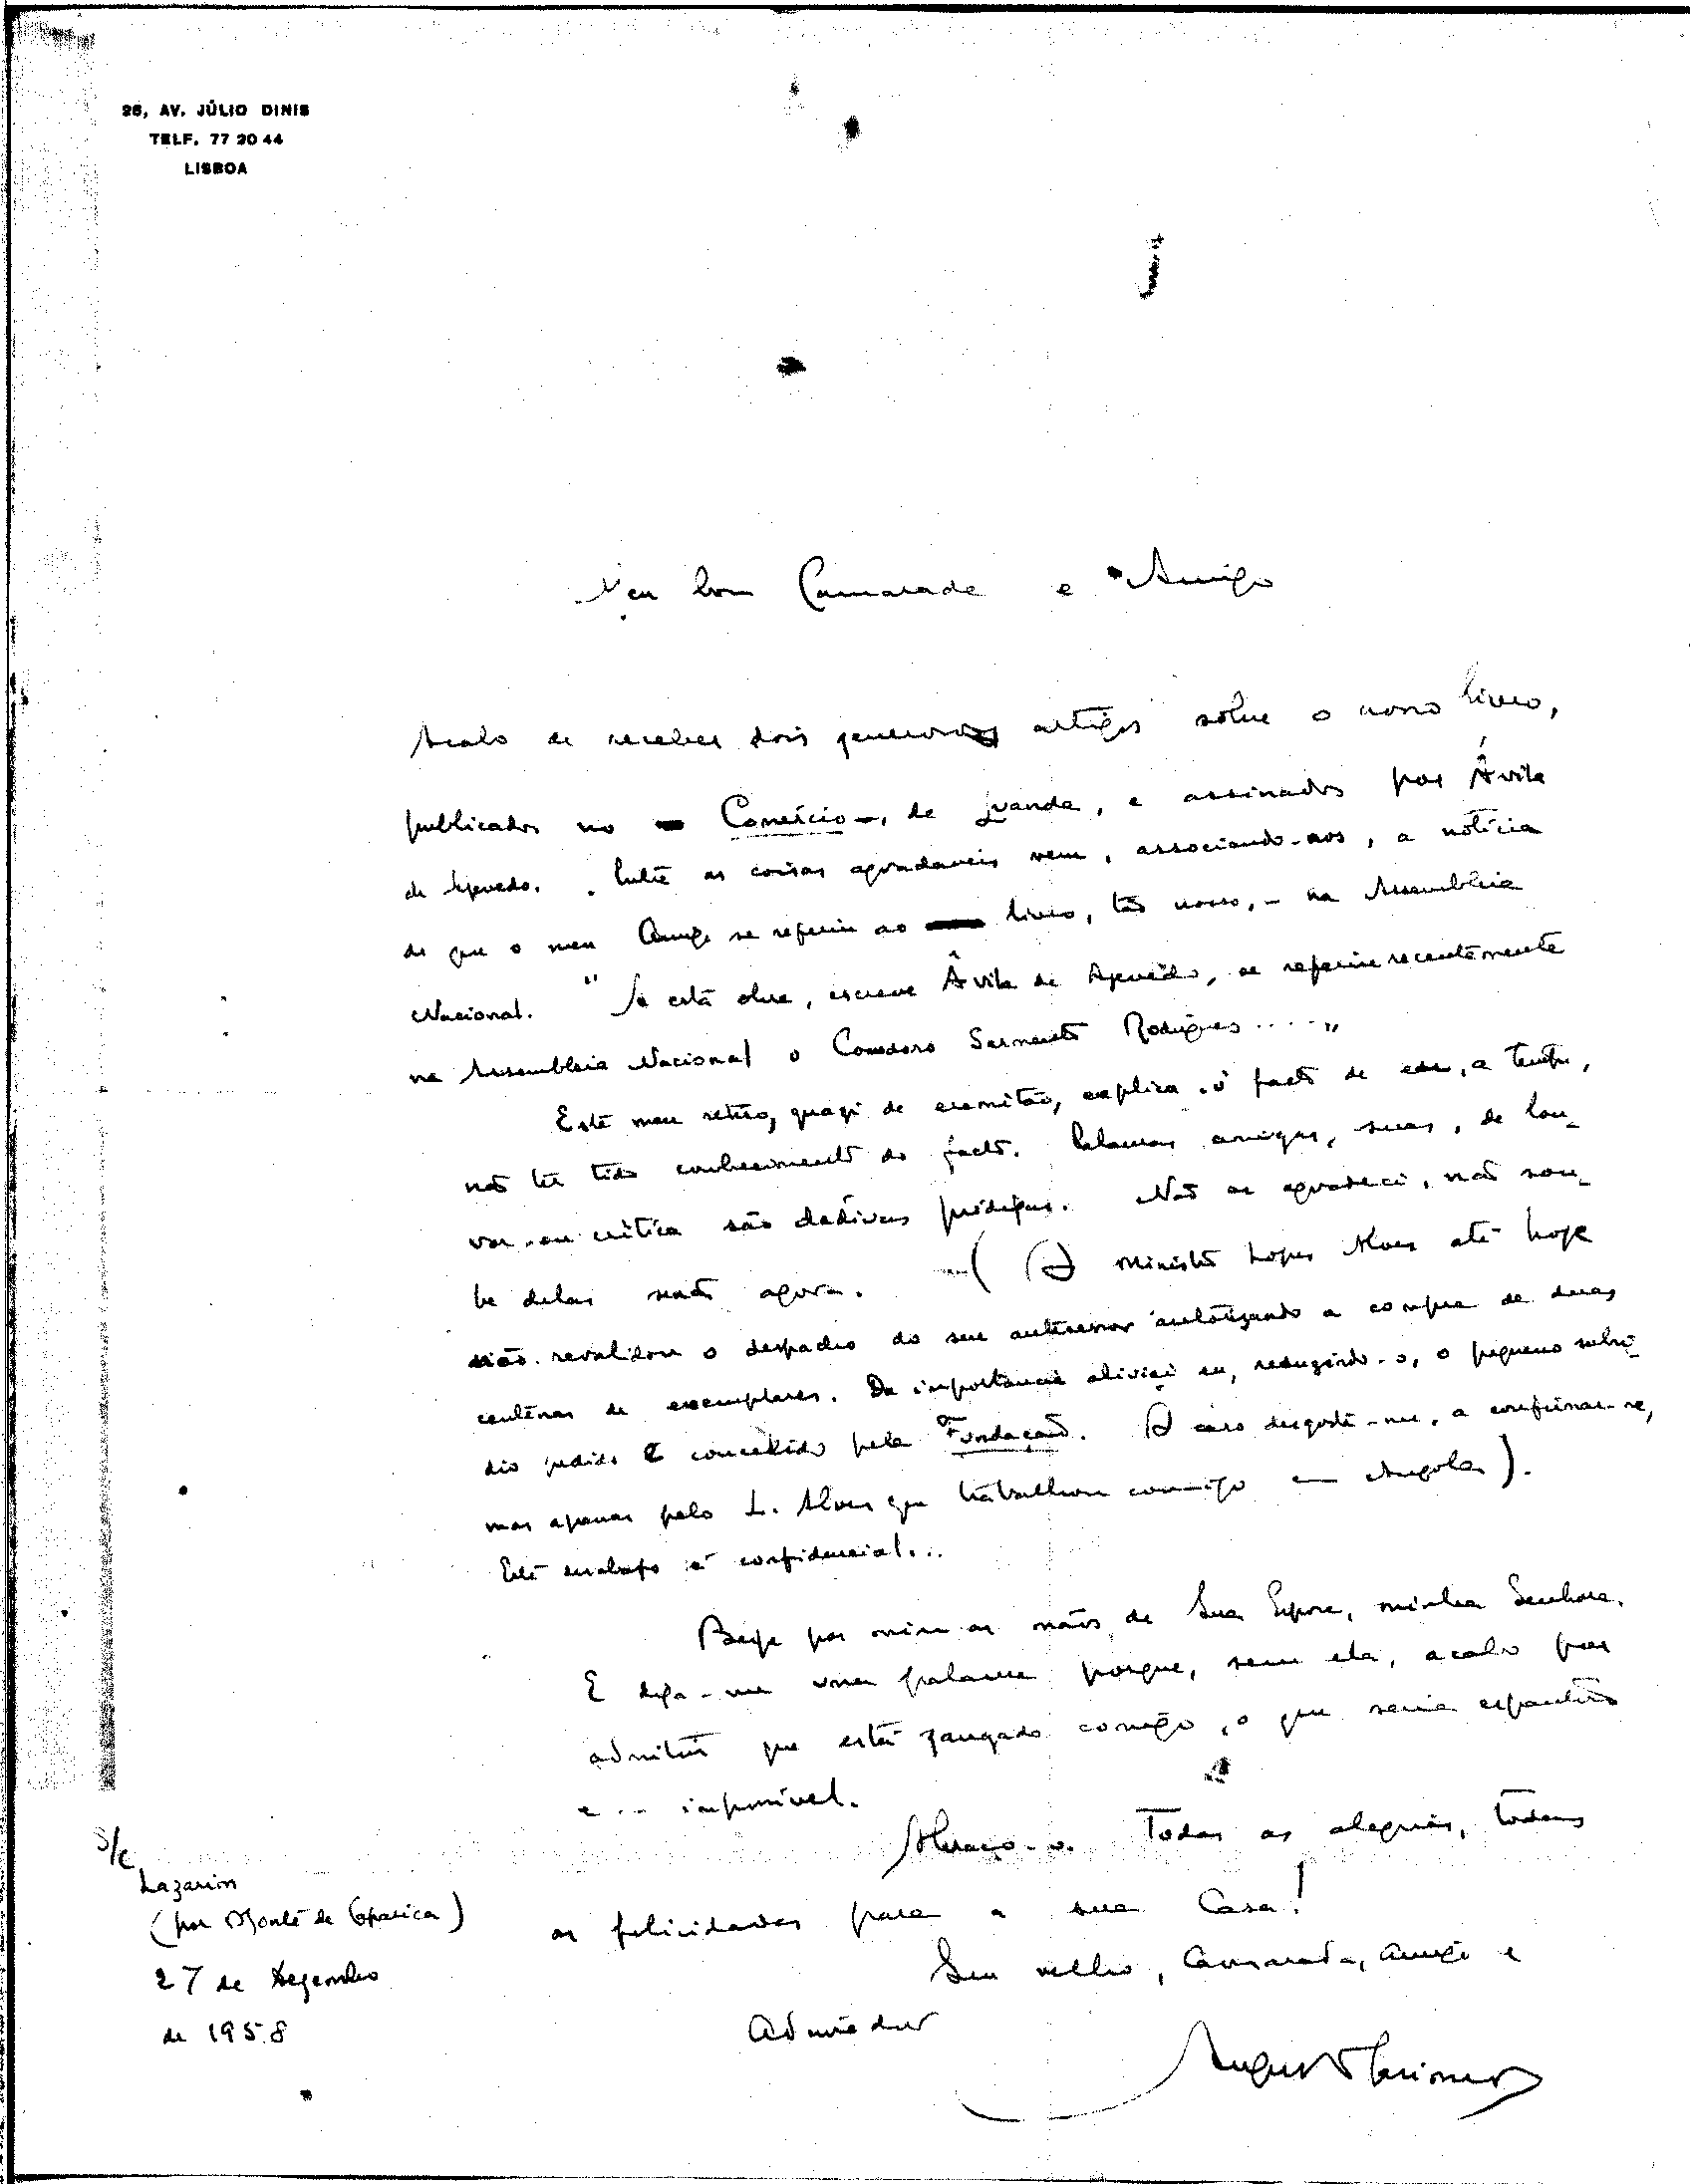 26, AV. JÚLIO DINIS
TELF. 77 20 44
LISBOA
Meu bom Camarada e Amigo
Acabo de receber dois generosos artigos sobre o nosso livro,
publicados no Comércio, de Luanda, e assinados por Ávila
de Azevedo. Entre as coisas agradaveis vem, associando-nos, a notícia
de que o meu Amigo se referiu ao livro, tão nosso, - na Assembleia
Nacional. "A esta obra, escreve Ávila de Azevedo, se referiu recentemente
na Assembleia Nacional o Comodoro Sarmento Rodrigues ....."
Este meu retiro, quazi de ermitão, explica o facto de eu, a tempo,
não ter tido conhecimento do facto. Palavras amigas, suas, de lou-
vor ou critica são dadivas pródigas. Não as agradeci, não sou-
be delas senão agora. (O Ministro Lopes Alves até hoje
não revalidou o despacho do seu antecessor autorizando a compra de duas
centenas de exemplares. Da importancia aliviei eu, reduzindo-o, o pequeno subsi-
dio pedido e concedido pela Fundação. O caso desgosta-me, a confirmar-se,
mas apenas pelo L. Alves que trabalhou comigo em Angola).
Este desabafo é confidencial...
Beije por mim as mãos de Sua Espoza, minha Senhora.
E diga-me uma palavra porque, sem ela, acabo por
admitir que está zangado comigo, o que seria
e ... impossivel.
Abraço-o. Todas as alegrias, todas
as felicidades para a sua Casa!
Seu velho, Camarada, Amigo e
Admirador
S/C
Lazarim
(por Monte de Caparica)
27 de Dezembro
de 1958